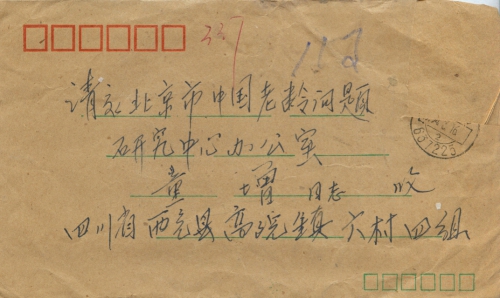 337
请交北京市中国老龄问题
研究中心办公室
童 增 同志 收
四川省西充县高院镇六村四组
637225